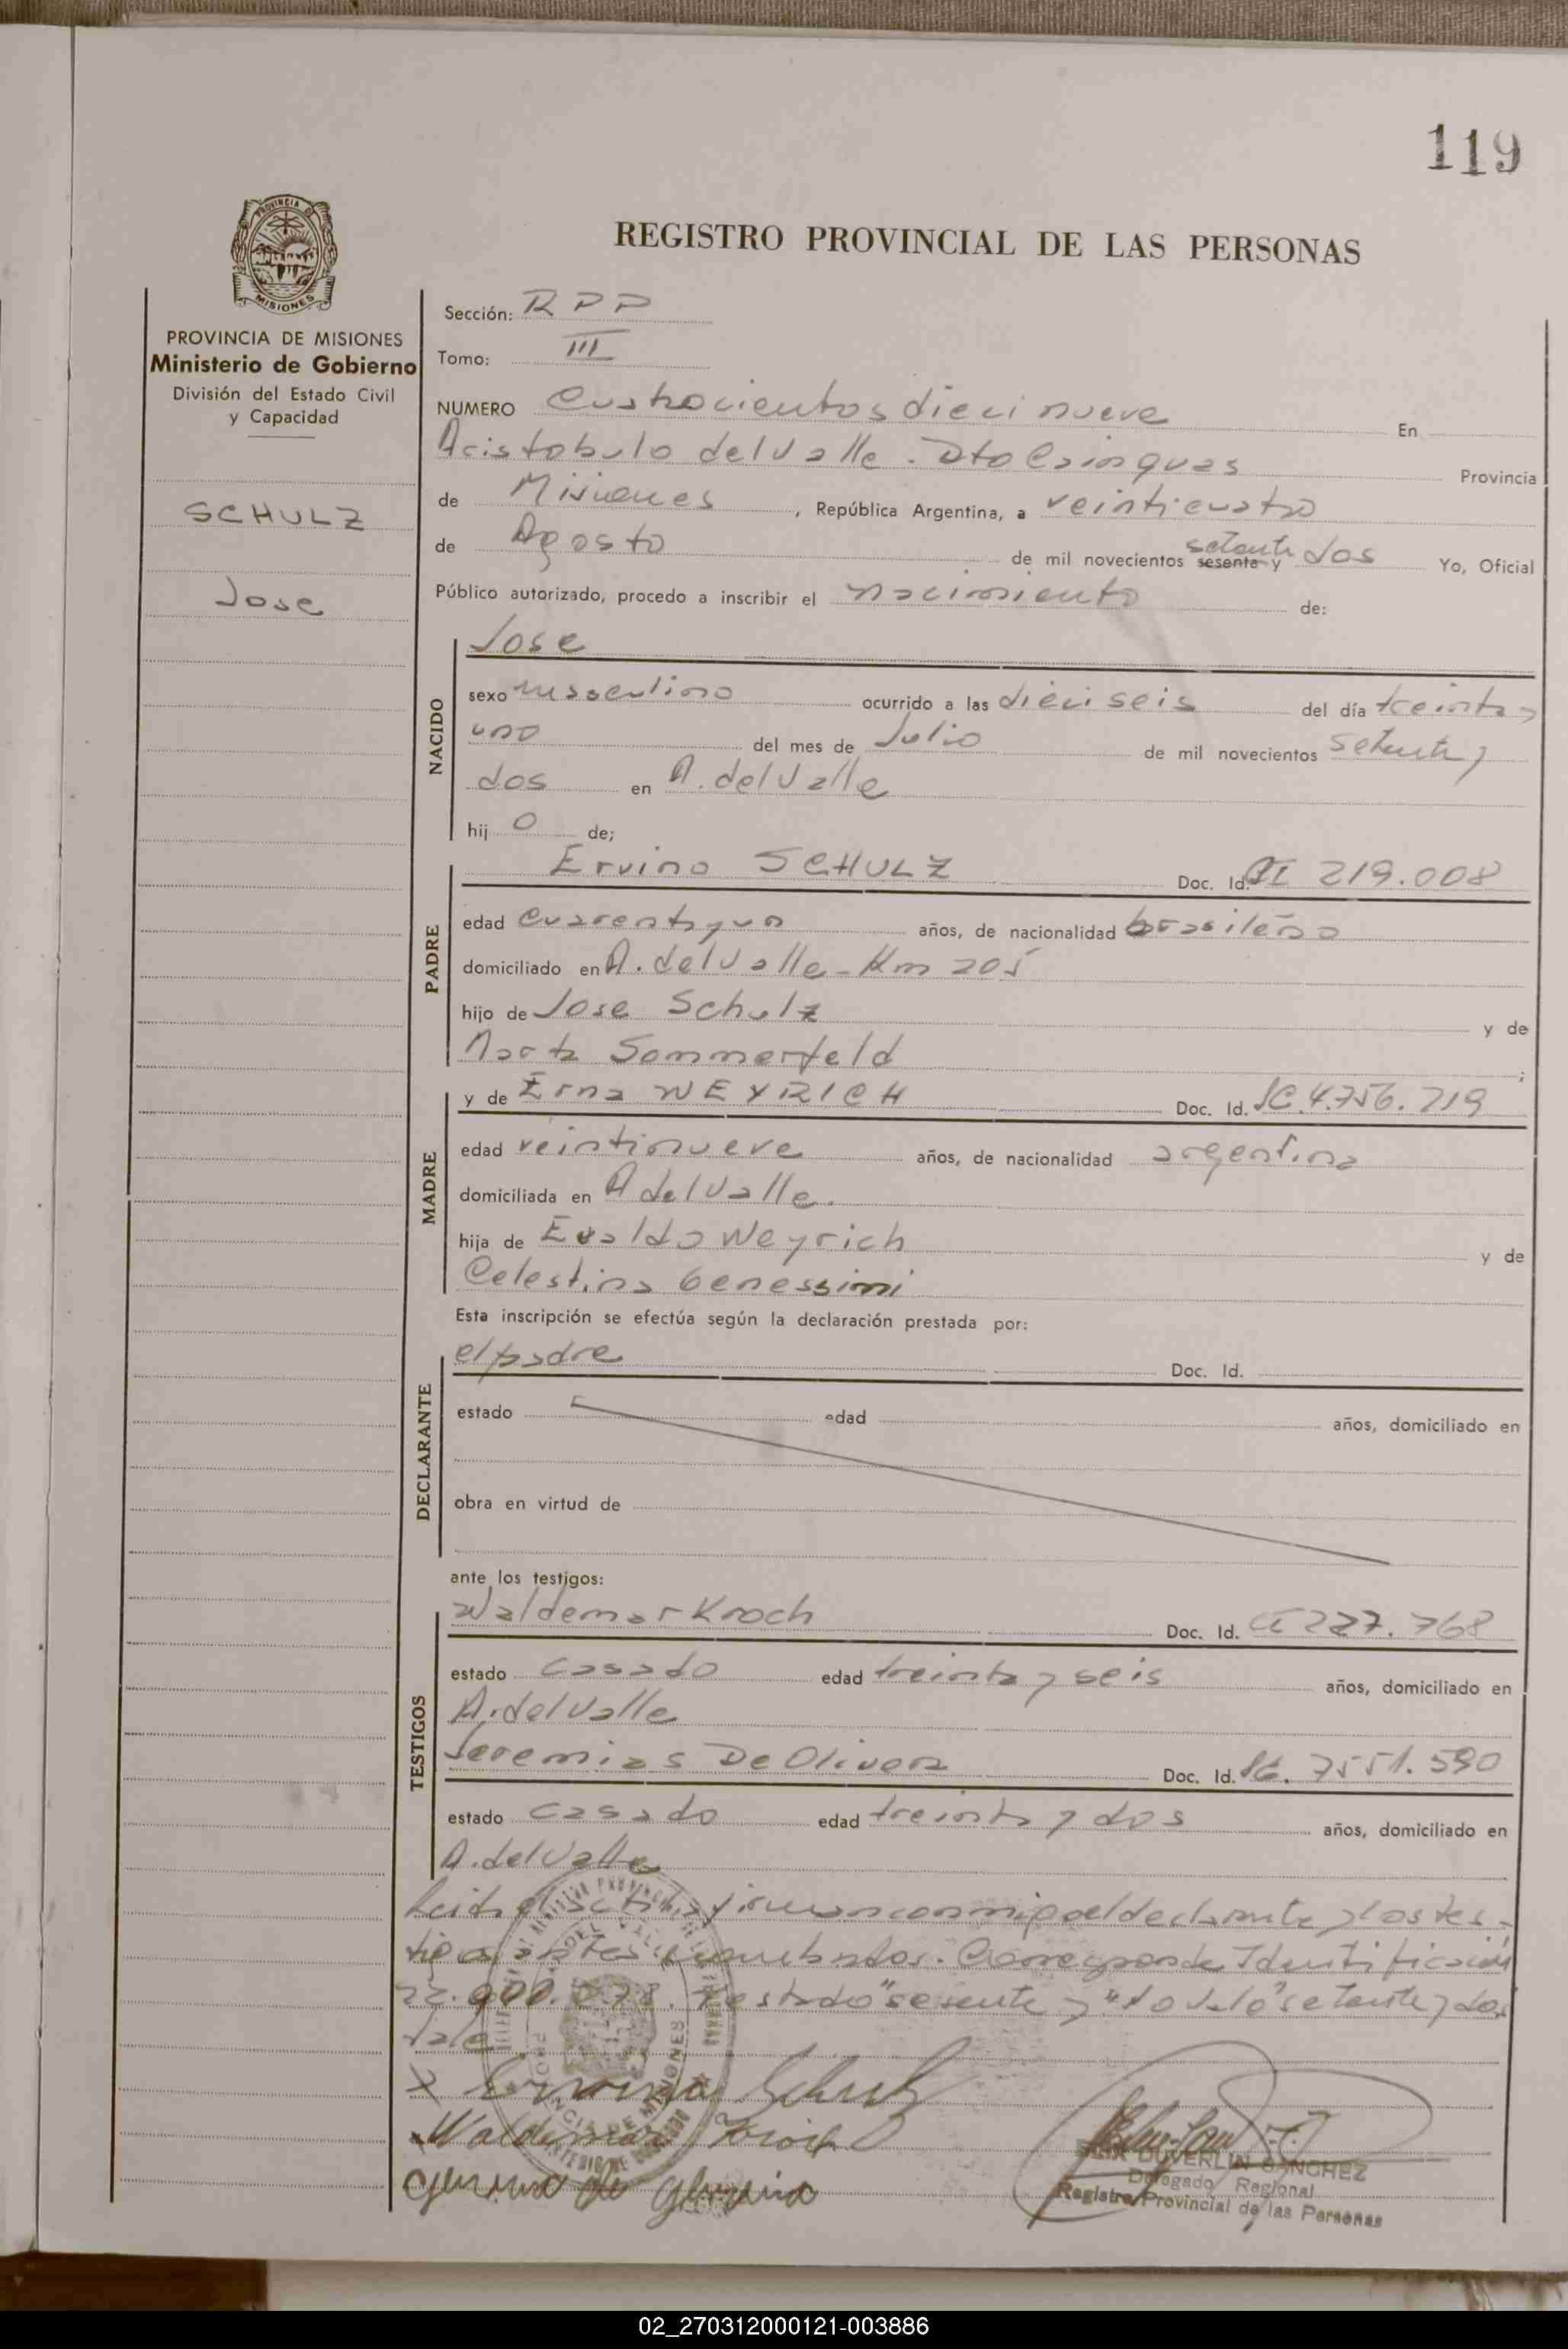 119
PROVINCIA DE
MISIONES
REGISTRO PROVINCIAL DE LAS PERSONAS
PROVINCIA DE MISIONES
Ministerio de Gobierno
División del Estado Civil
y Capacidad
SCHULZ
Jose
Sección: RPP
Tomo: III
NUMERO Cuatrocientos diecinueve En
Aristobulo del Valle. Dto Cainguas Provincia
de Misiones, República Argentina, a veinticuatro
de Agosto de mil novecientos sesenta y setenta dos Yo, Oficial
Público autorizado, procedo a inscribir el nacimiento de:
NACIDO
Jose
sexo masculino ocurrido a las dieciseis del día treinta y
uno del mes de Julio de mil novecientos setenta y
dos en A. del Valle
hij o de;
PADRE
Ervino SCHULZ Doc. Id. CI 219.008
edad cuarenta y un años, de nacionalidad brasileña
domiciliado en A. del Valle - Km 205
hijo de Jose Schulz y de
Marta Sommerfeld ;
MADRE
y de Erna WEYRICH Doc. Id. LC. 4.756.719
edad veintinueve años, de nacionalidad argentina
domiciliada en A del Valle.
hija de Evaldo Weyrich y de
Celestina Genessini
Esta inscripción se efectúa según la declaración prestada por:
DECLARANTE
el padre Doc. Id.
estado edad años, domiciliado en
obra en virtud de
ante los testigos:
TESTIGOS
Waldemar Kroch Doc. Id. CI 227.768
estado casado edad treinta y seis años, domiciliado en
A. del Valle
Jeremias De Olivera Doc. Id. 7551.590
estado casado edad treinta y dos años, domiciliado en
A. del Valle
Leida el acta firman conmigo el declarante y los tes-
tigos antes nombrados. Corresponde Identificación
22.900. Testado "sesenta y" setenta y dos
Vale
x Ervino Schulz
Waldemar Kroch
DUVERLIN SANCHEZ
Delegado Regional
Registro Provincial de las Personas
02_270312000121-003886